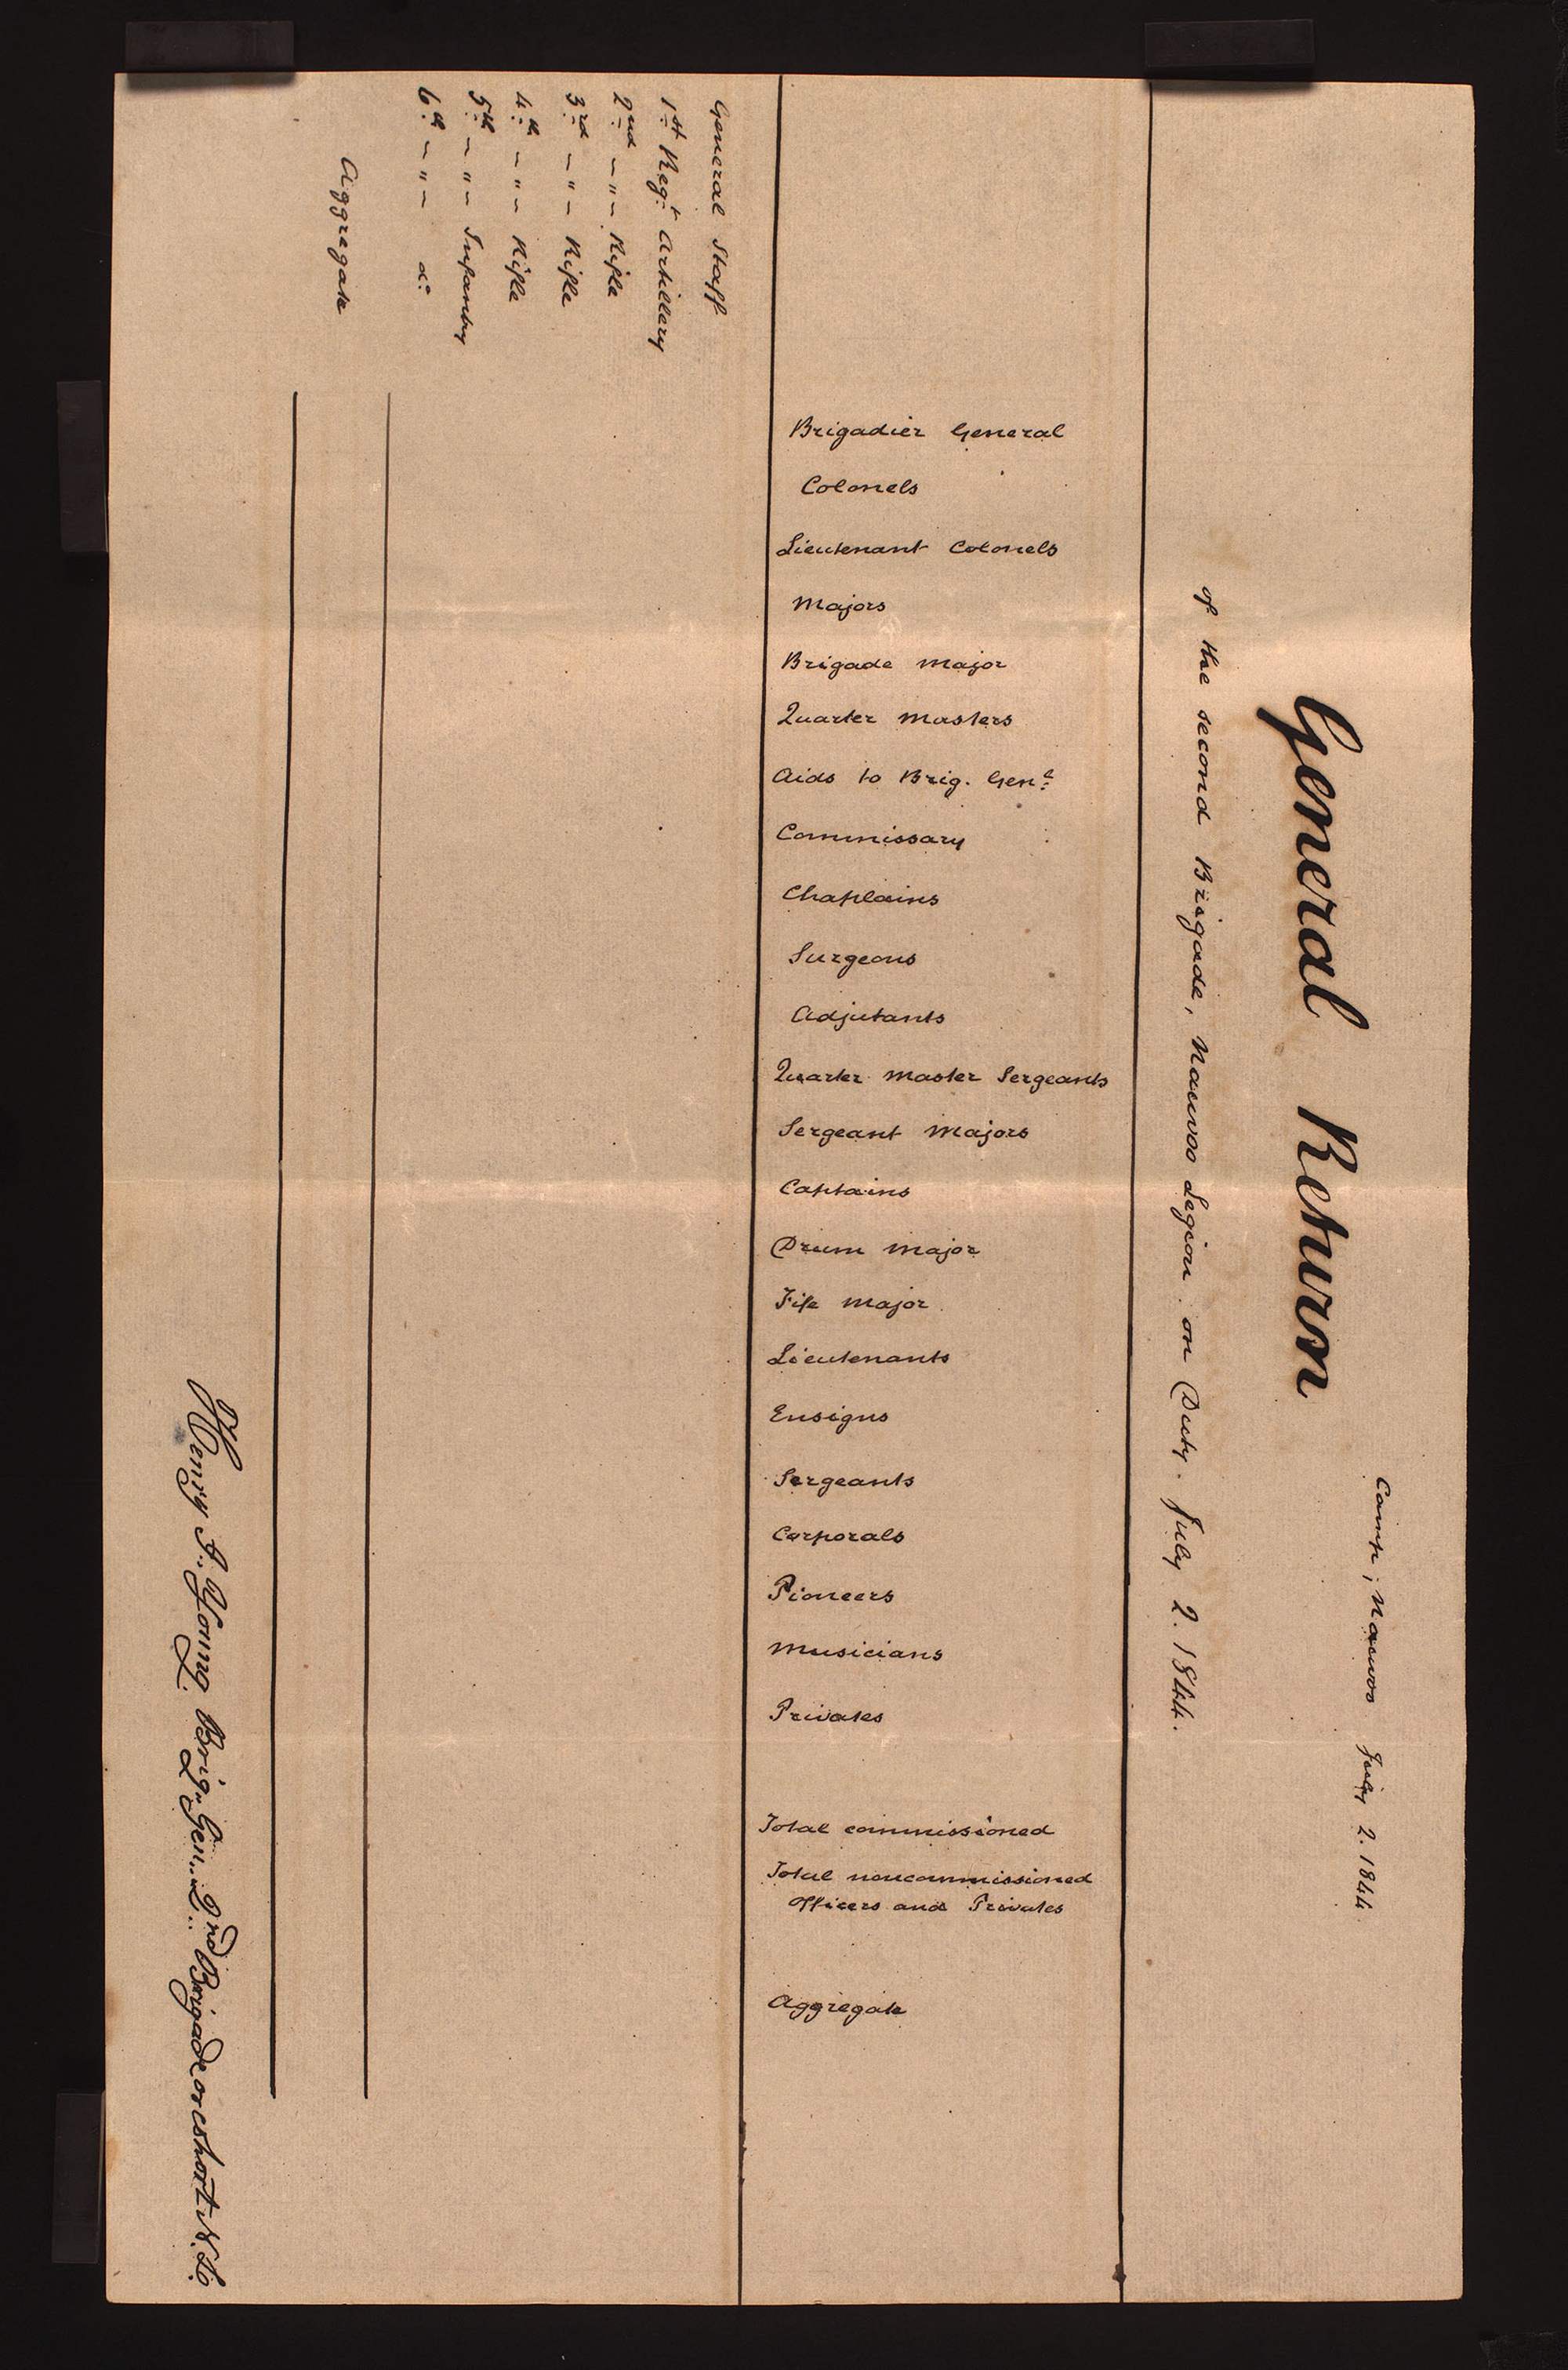 Camp, Nauvoo July 2. 1844.
General Return
of the second Brigade, Nauvoo Legion. on Duty. July 2. 1844.
Brigadier General
Colonels
Lieutenant Colonels
Majors
Brigade Major
Quarter Masters
Aids to Brig. Genl.
Commissary
Chaplains
Surgeons
Adjutants
Quarter Master Sergeants
Sergeant Majors
Captains
Drum Major
Fife Major
Lieutenants
Ensigns
Sergeants
Corporals
Pioneers
Musicians
Privates
Total commissioned
Total noncommissioned
Officers and Privates
Aggregate
General Staff
1st Regt. Artillery
2nd — " — Rifle
3rd — " — Rifle
4th — " — Rifle
5th — " — Infantry
6th — " — do.
Aggregate
Brig. Gen. 2nd Brigade or cohort N. L.